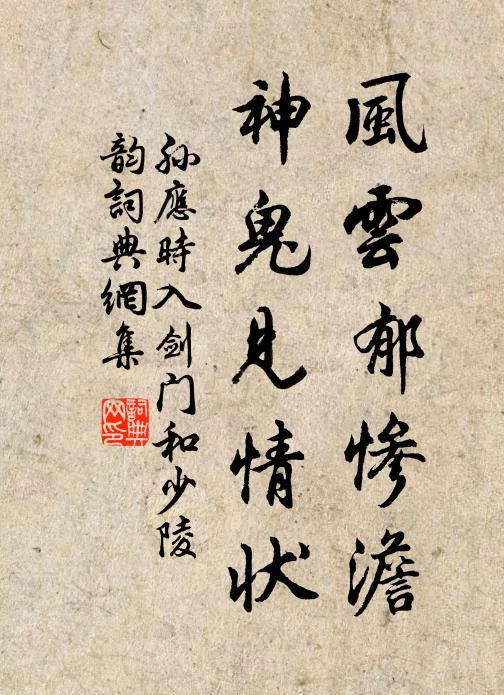 風雲郁惨澹
神鬼見情状
孙應時入劍门和少陵
韵詞典網集
詞典网印